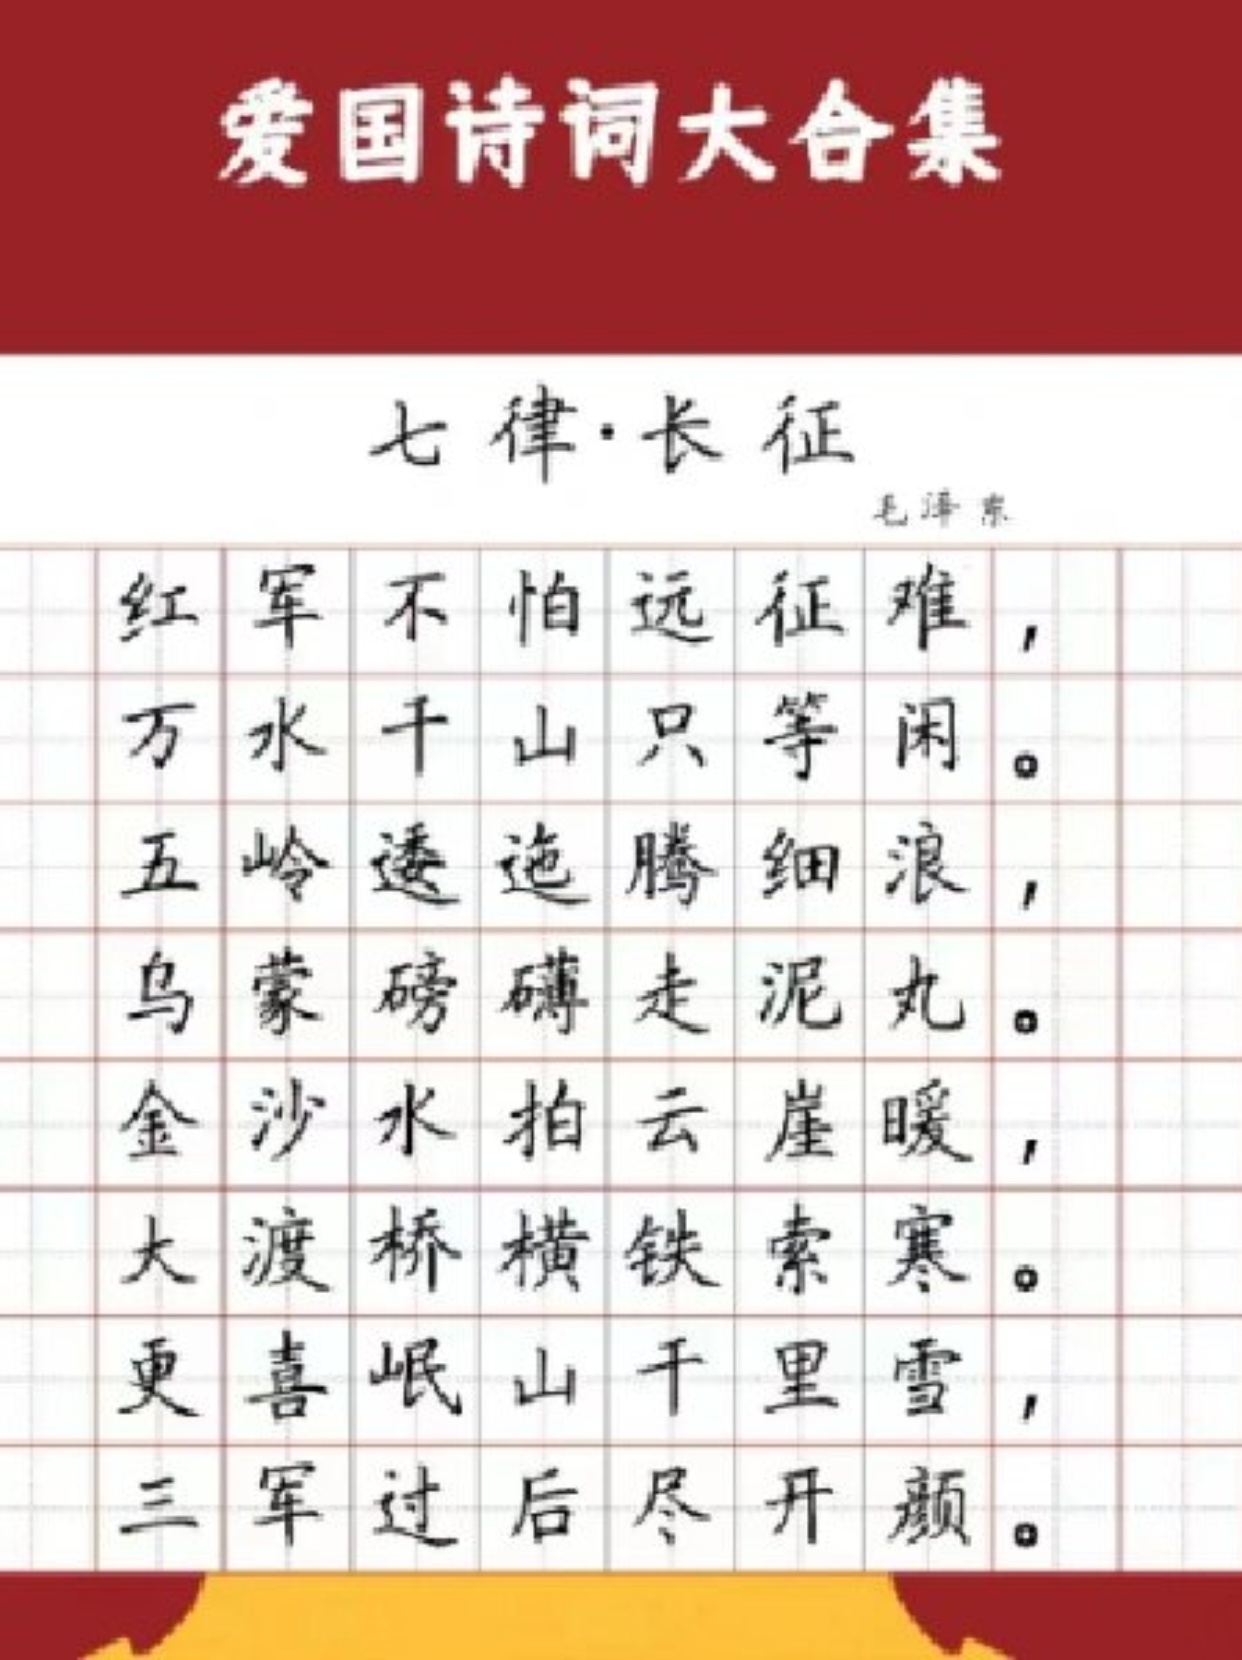 爱国诗词大合集
七律·长征
毛泽东
红军不怕远征难，
万水千山只等闲。
五岭逶迤腾细浪，
乌蒙磅礴走泥丸。
金沙水拍云崖暖，
大渡桥横铁索寒。
更喜岷山千里雪，
三军过后尽开颜。